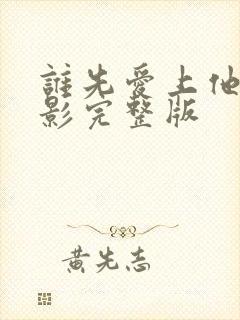 誰先愛上他
影完整版
黃先志